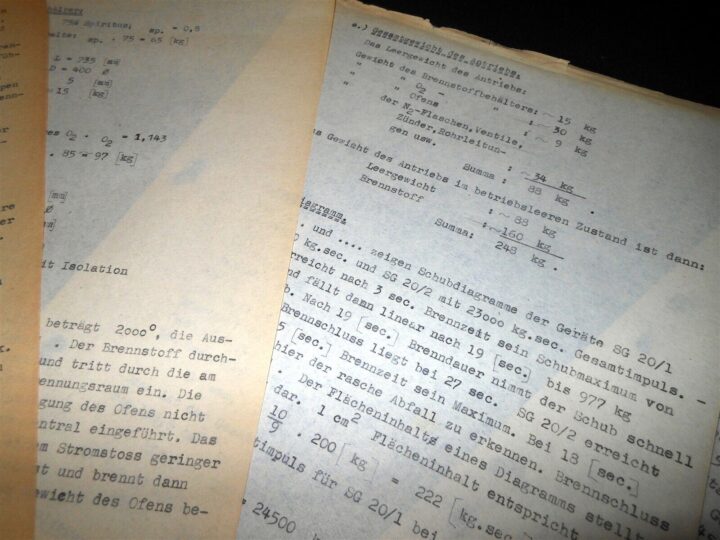 75% Spiritus; sp. = 0,8
sp. · 75 = 65 [kg]
L = 735 [mm]
D = 400 Ø
5 [mm]
~ 15 [kg]
es O₂ · O₂ = 1,143
· 85 = 97 [kg]
[mm]
Ø
[mm]
[kg]
it Isolation
beträgt 2000°, die Aus-
. Der Brennstoff durch-
und tritt durch die am
ennungsraum ein. Die
gung des Ofens nicht
entral eingeführt. Das
em Stromstoss geringer
st und brennt dann
ewicht des Ofens be-
e.) Gesamtgewicht des Antriebs:
Das Leergewicht des Antriebs:
Gewicht des Brennstoffbehälters: ~ 15 kg
" " O₂ - " : ~ 30 kg
" " Ofens : ~ 9 kg
" der N₂-Flaschen, Ventile,
Zünder, Rohrleitun-
gen usw. : ~ 34 kg
Summa : 88 kg .
s Gewicht des Antriebs im betriebsleeren Zustand ist dann:
Leergewicht : ~ 88 kg
Brennstoff : ~160 kg
Summa: 248 kg .
iagramm.
. und .... zeigen Schubdiagramme der Geräte SG 20/1
0 kg.sec. und SG 20/2 mit 23000 kg.sec. Gesamtimpuls. -
rreicht nach 3 sec. Brennzeit sein Schubmaximum von
nd fällt dann linear nach 19 [sec.] bis 977 kg
b. Nach 19 [sec.] Brenndauer nimmt der Schub schnell
Brennschluss liegt bei 27 sec. SG 20/2 erreicht
5 [sec.] Brennzeit sein Maximum. Bei 18 [sec.]
hier der rasche Abfall zu erkennen. Brennschluss
. Der Flächeninhalt eines Diagramms stellt
dar. 1 cm² Flächeninhalt entspricht
10/9 · 200 [kg] = 222 [kg.sec.]
stimpuls für SG 20/1 bei
24500